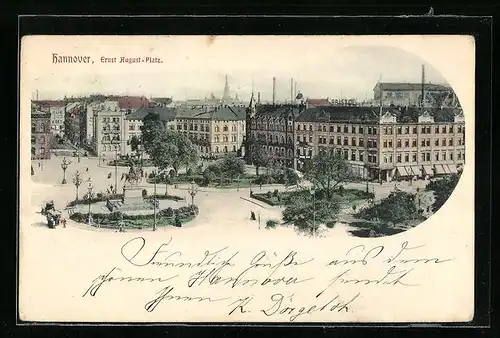 Hannover, Ernst August-Platz.
BRISTOL
Freundliche Grüße aus dem
schönen Hannover sendet
Ihnen K. Dörgeloh